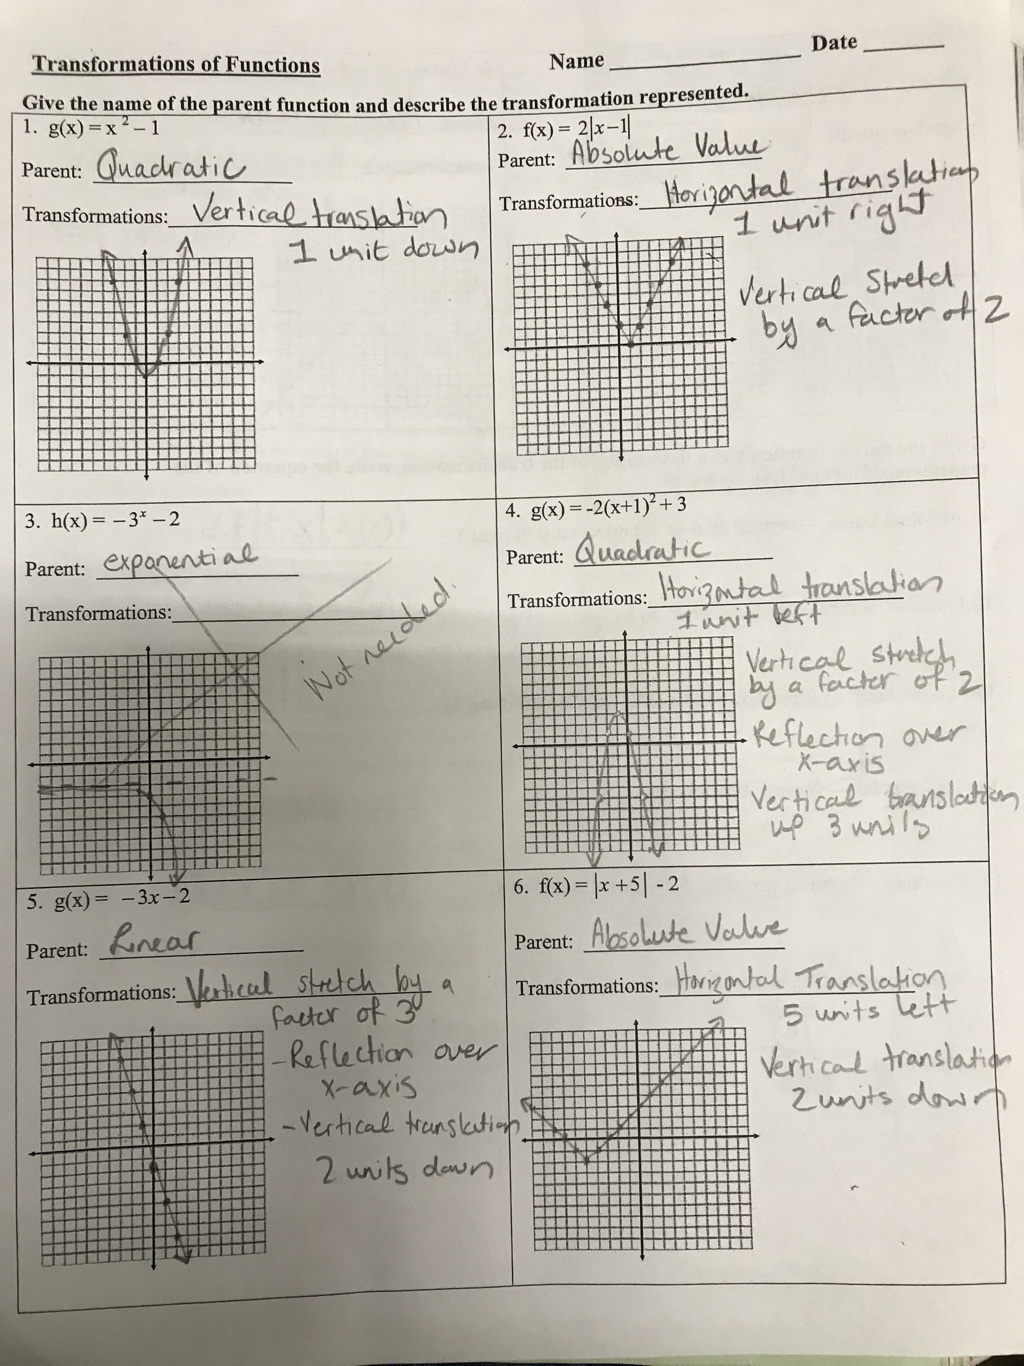 Transformations of Functions Name __________ Date ______
Give the name of the parent function and describe the transformation represented.
1. g(x) = x² – 1
Parent: Quadratic
Transformations: Vertical translation
1 unit down
2. f(x) = 2|x–1|
Parent: Absolute Value
Transformations: Horizontal translation
1 unit right
Vertical Stretch
by a factor of 2
3. h(x) = –3ˣ – 2
Parent: exponential
Transformations:
Not needed.
4. g(x) = -2(x+1)² + 3
Parent: Quadratic
Transformations: Horizontal translation
1 unit left
Vertical stretch
by a factor of 2
Reflection over
x-axis
Vertical translation
up 3 units
5. g(x) = –3x – 2
Parent: Linear
Transformations: Vertical stretch by a
factor of 3
- Reflection over
x-axis
- Vertical translation
2 units down
6. f(x) = |x +5| - 2
Parent: Absolute Value
Transformations: Horizontal Translation
5 units left
Vertical translation
2 units down